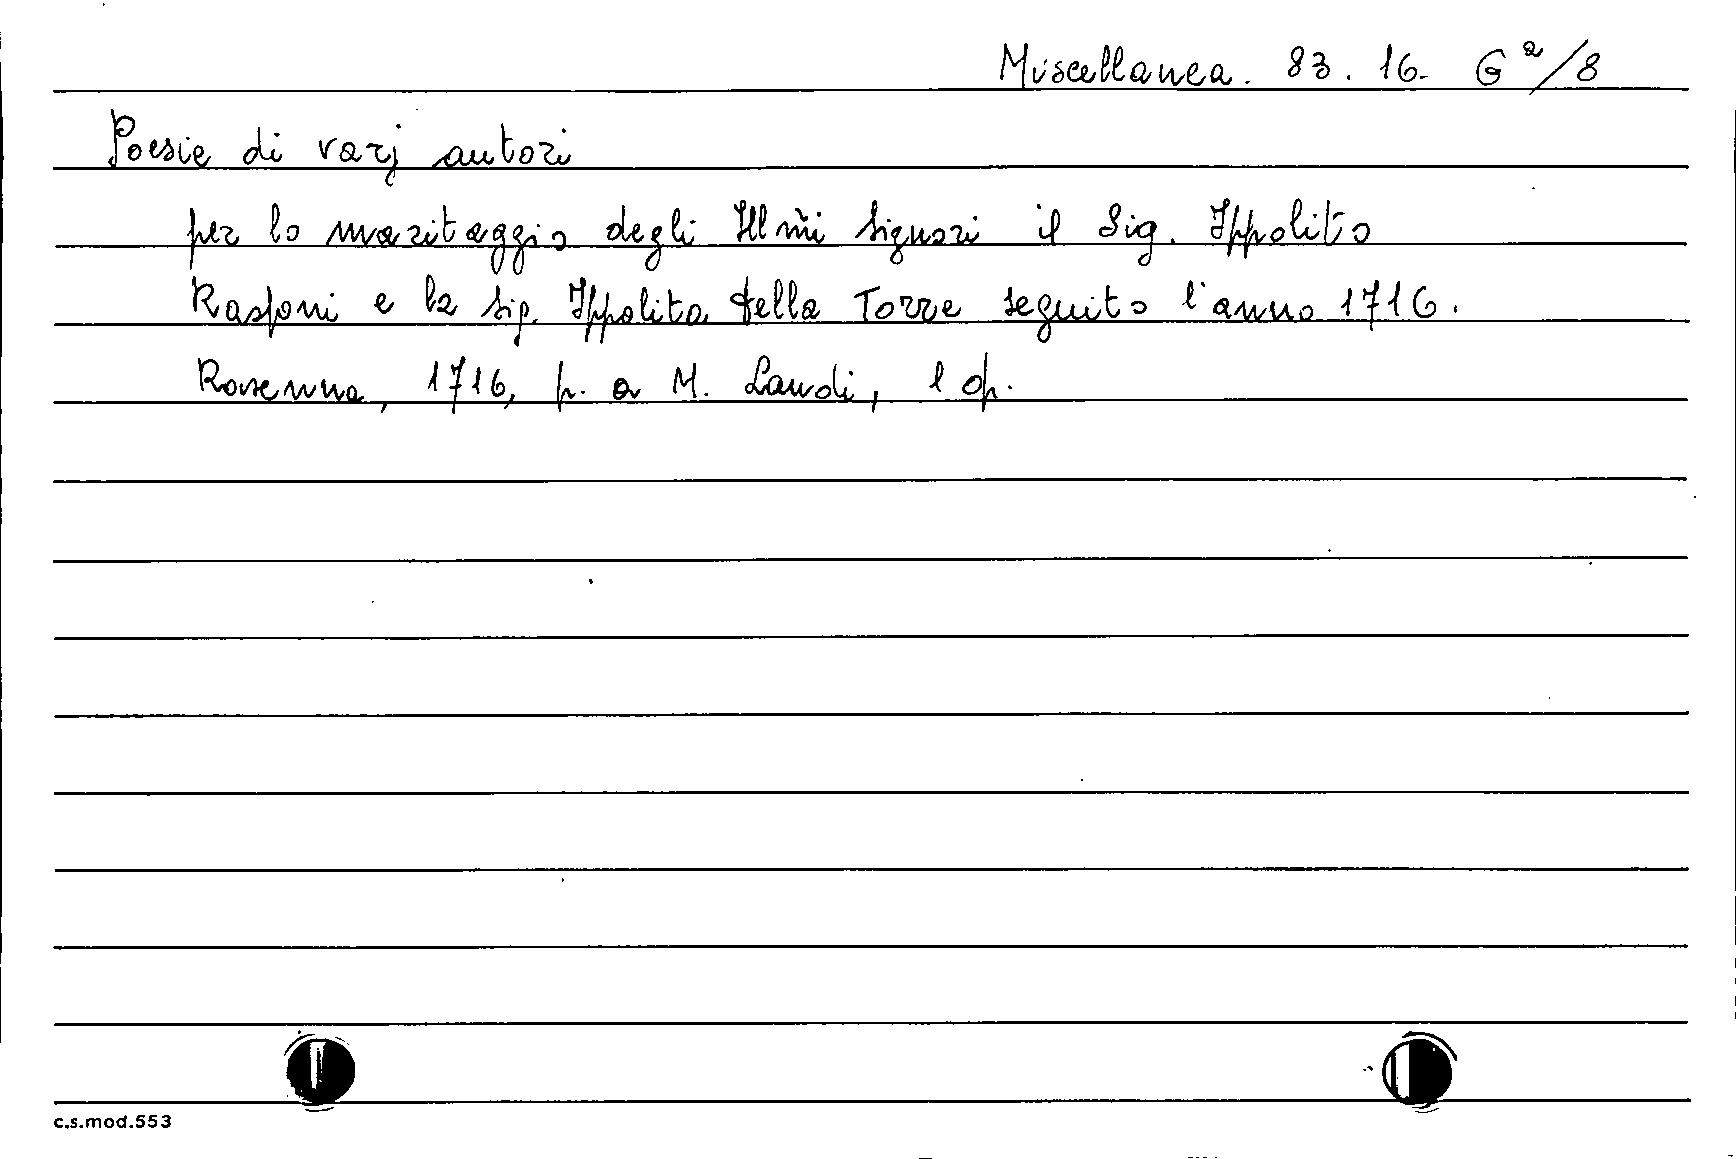 Miscellanea. 83. 16. G²/8
Poesie di varj autori
per lo maritaggio degli Illm̃i signori il Sig. Ippolito
Rasponi e la sig. Ippolita della Torre seguito l'anno 1716.
Ravenna, 1716, p. a M. Landi, 1 op.
c.s.mod.553